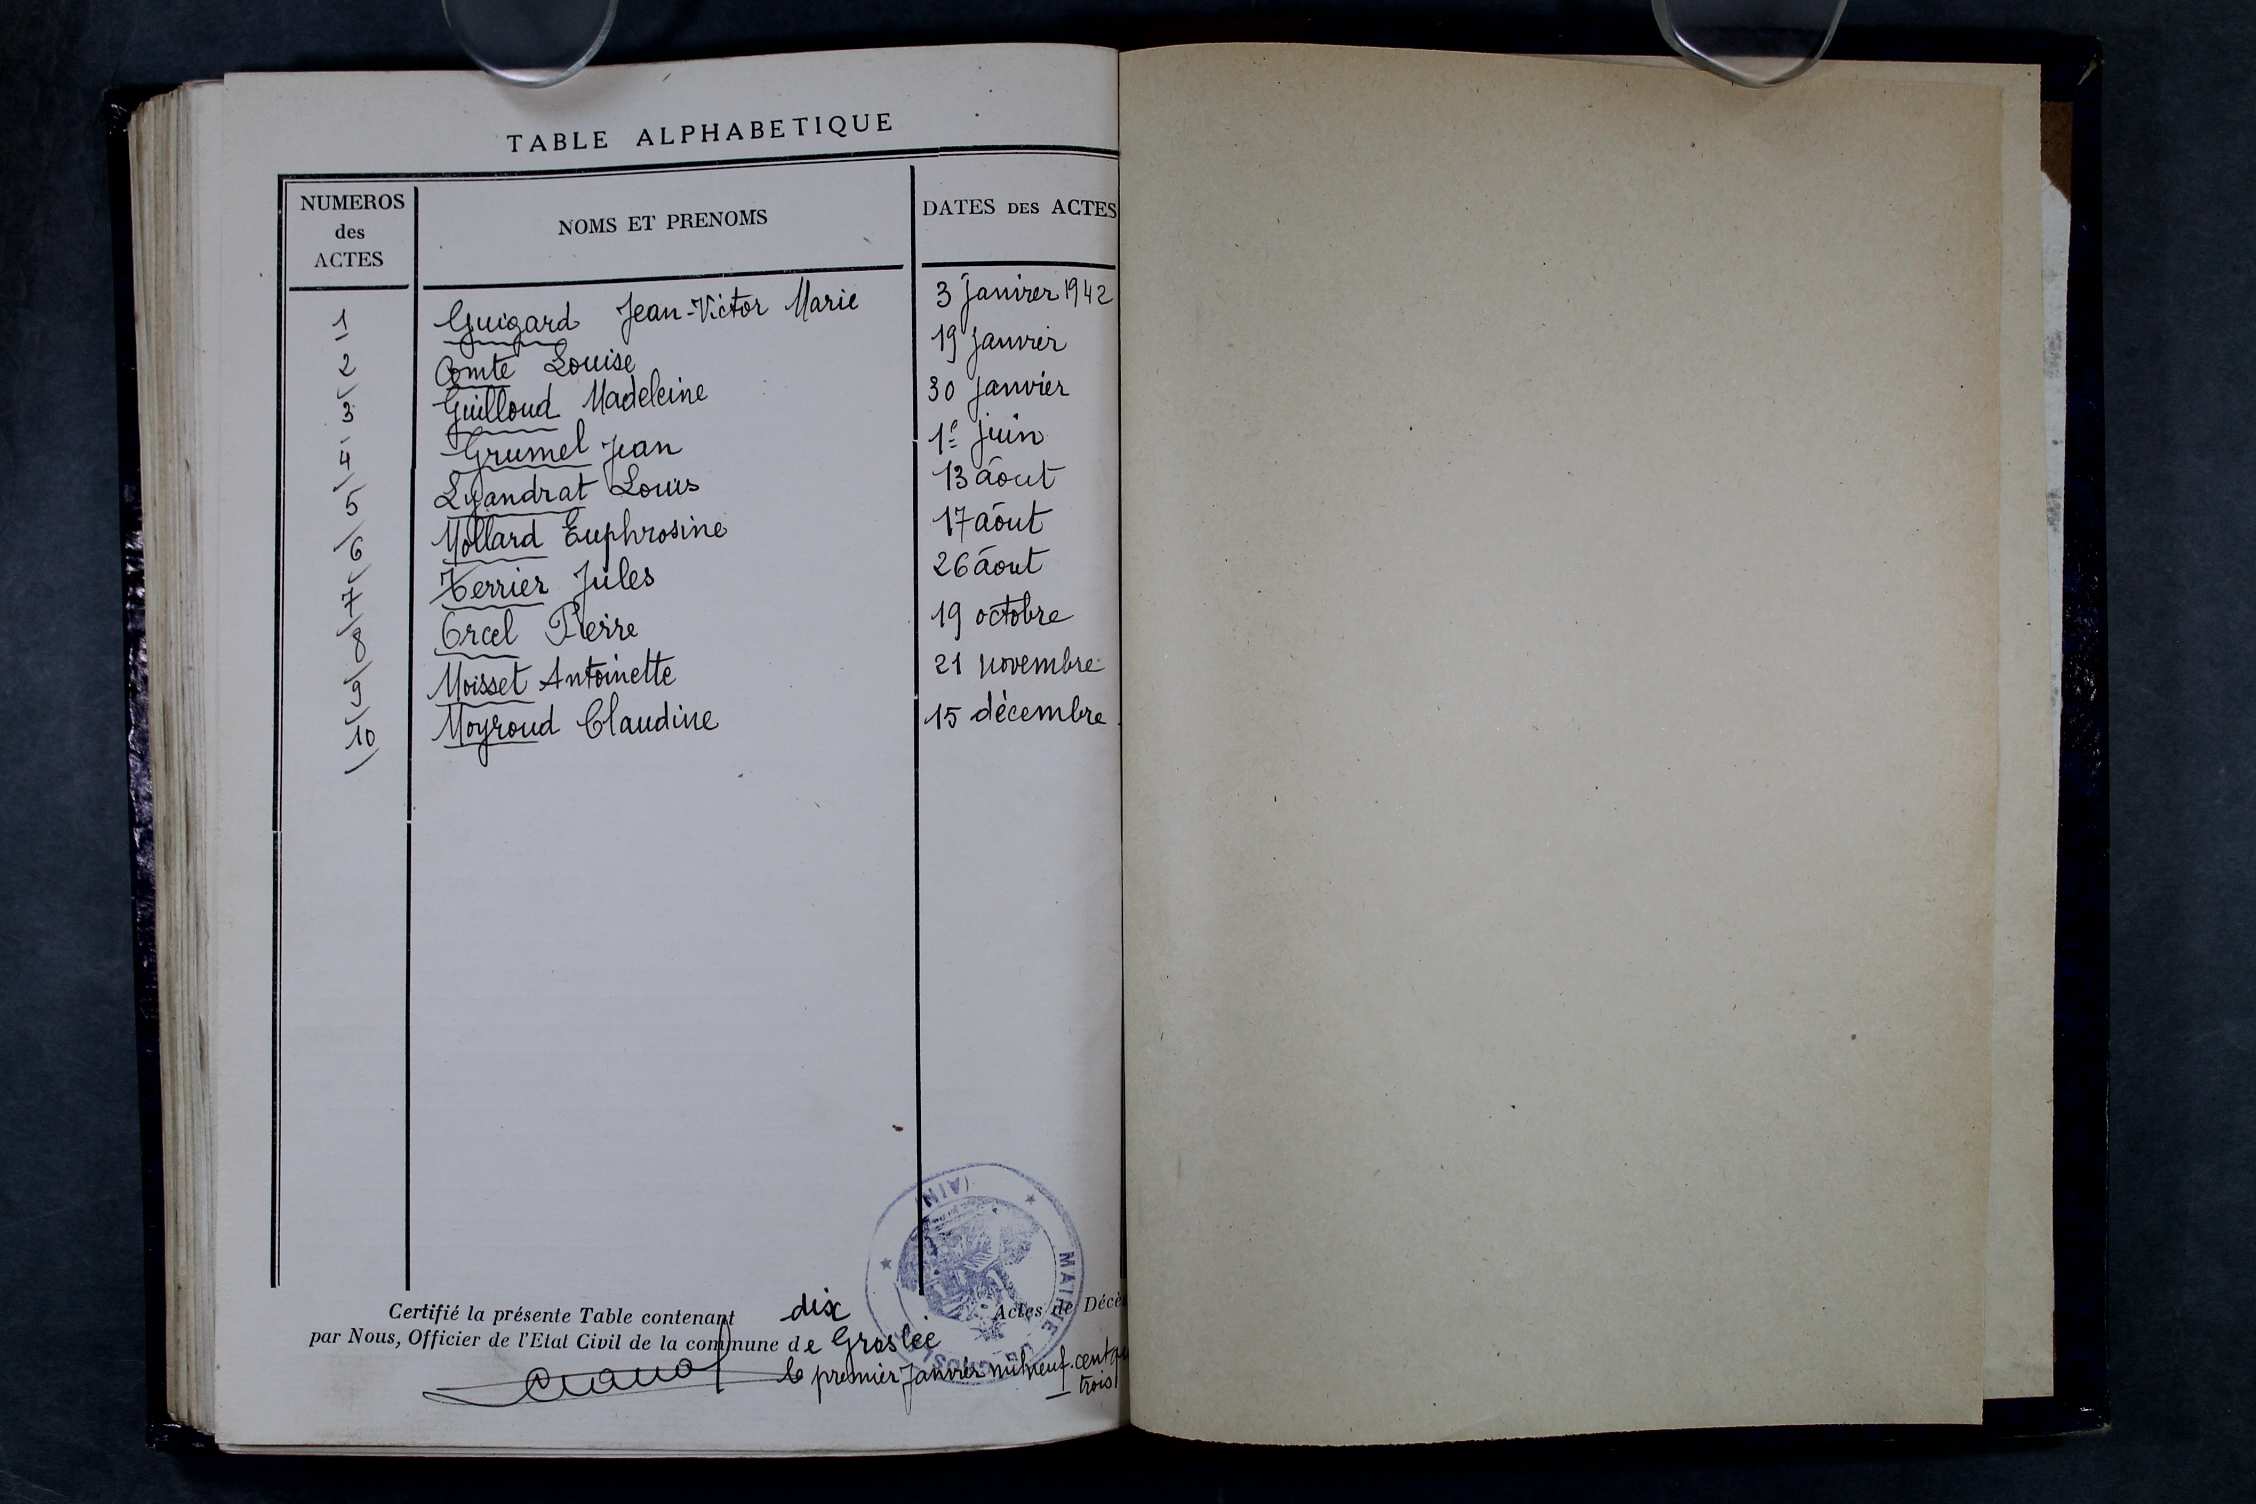 TABLE ALPHABETIQUE
NUMEROS des ACTES
NOMS ET PRENOMS
DATES DES ACTES
1 Guigard Jean-Victor Marie 3 Janvier 1942
2 Comte Louise 19 Janvier
3 Guilloud Madeleine 30 Janvier
4 Grumel Jean 1e juin
5 Lyandrat Louis 13 août
6 Mollard Euphrosine 17 août
7 Terrier Jules 26 août
8 Orcel Pierre 19 octobre
9 Moisset Antoinette 21 novembre
10 Moyroud Claudine 15 décembre
Certifié la présente Table contenant dix Actes de Décè
par Nous, Officier de l'Etat Civil de la commune de Groslée
le premier Janvier mil neuf-cent
trois
MAIRIE DE (AIN)